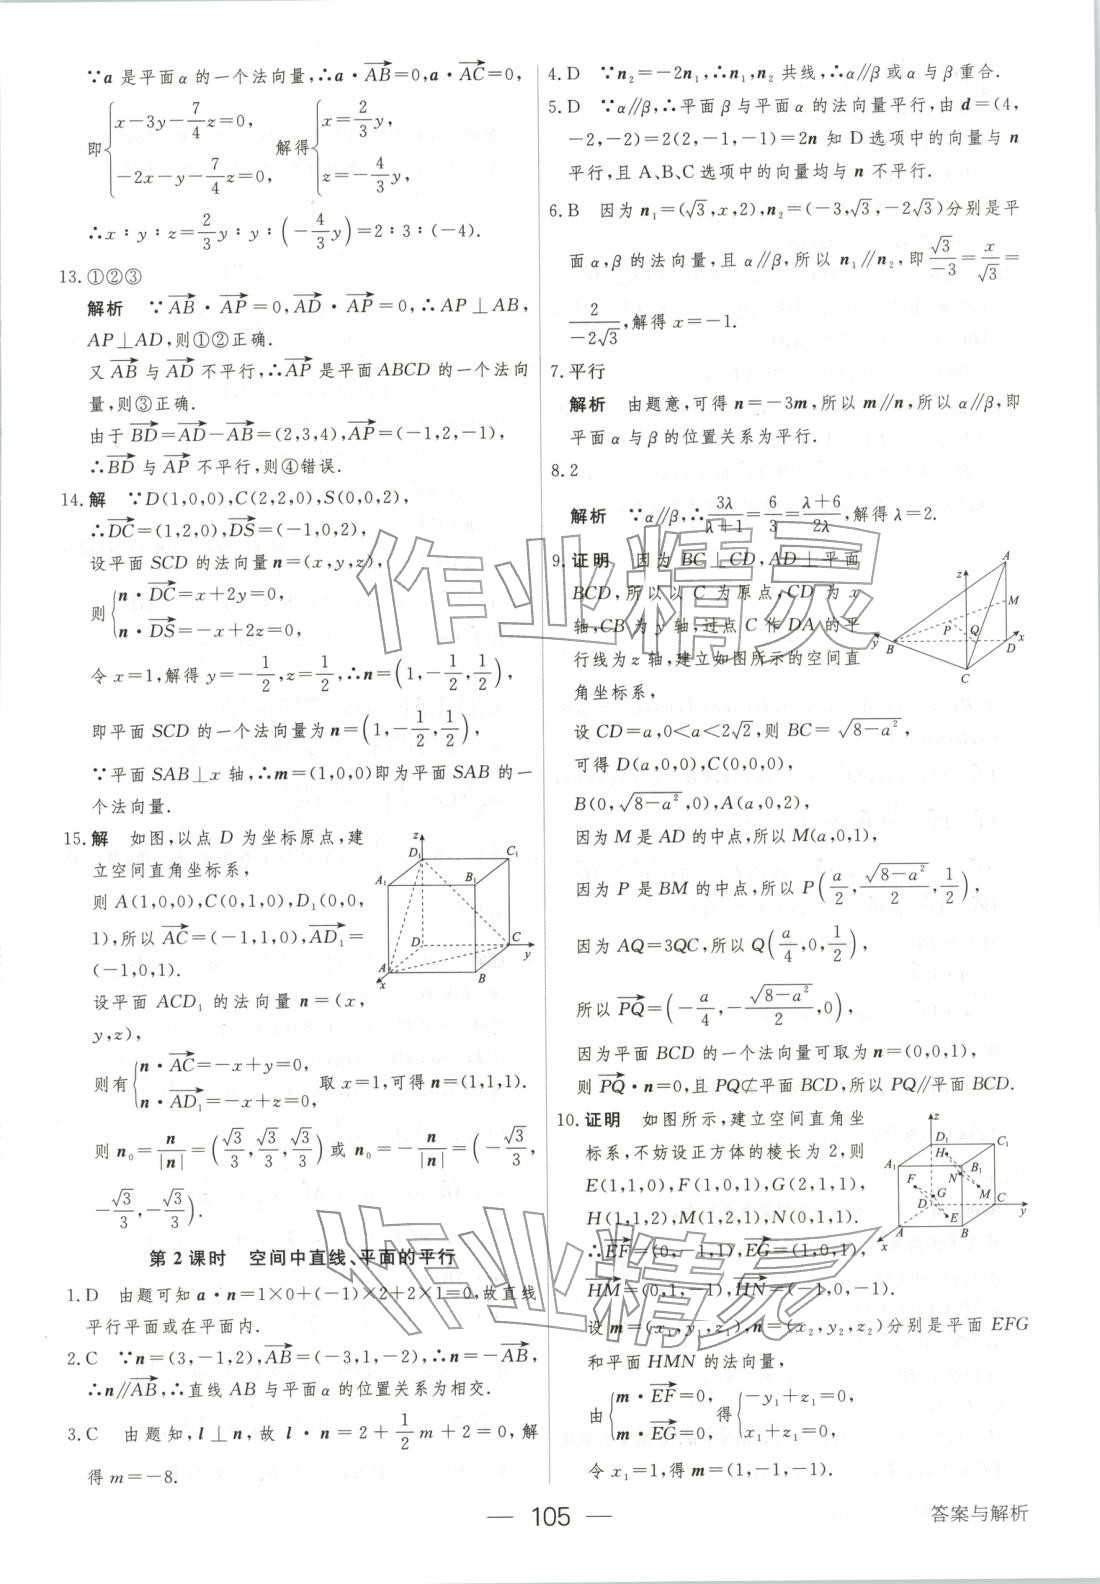 ∵a 是平面 α 的一个法向量,∴a·AB=0,a·AC=0,
即{x-3y-7/4z=0, -2x-y-7/4z=0, 解得{x=2/3y, z=-4/3y,
∴x∶y∶z=2/3y∶y∶(-4/3y)=2∶3∶(-4).
13.①②③
解析 ∵AB·AP=0,AD·AP=0,∴AP⊥AB,
AP⊥AD,则①②正确.
又 AB 与 AD 不平行,∴AP 是平面 ABCD 的一个法向
量,则③正确.
由于 BD=AD-AB=(2,3,4),AP=(-1,2,-1),
∴BD 与 AP 不平行,则④错误.
14.解 ∵D(1,0,0),C(2,2,0),S(0,0,2),
∴DC=(1,2,0),DS=(-1,0,2),
设平面 SCD 的法向量 n=(x,y,z),
则{n·DC=x+2y=0, n·DS=-x+2z=0,
令 x=1,解得 y=-1/2,z=1/2,∴n=(1,-1/2,1/2),
即平面 SCD 的一个法向量为 n=(1,-1/2,1/2),
∵平面 SAB⊥x 轴,∴m=(1,0,0)即为平面 SAB 的一
个法向量.
15.解 如图,以点 D 为坐标原点,建
立空间直角坐标系,
则 A(1,0,0),C(0,1,0),D₁(0,0,
1),所以 AC=(-1,1,0),AD₁=
(-1,0,1).
设平面 ACD₁ 的法向量 n=(x,
y,z),
则有{n·AC=-x+y=0, n·AD₁=-x+z=0, 取 x=1,可得 n=(1,1,1).
则 n₀=n/|n|=(√3/3,√3/3,√3/3)或 n₀=-n/|n|=(-√3/3,
-√3/3,-√3/3).
z
D₁
C₁
A₁
B₁
D
C
y
A
x
B
第 2 课时 空间中直线、平面的平行
1.D 由题可知 a·n=1×0+(-1)×2+2×1=0,故直线
平行平面或在平面内.
2.C ∵n=(3,-1,2),AB=(-3,1,-2),∴n=-AB,
∴n∥AB,∴直线 AB 与平面 α 的位置关系为相交.
3.C 由题知,l⊥n,故 l·n=2+1/2m+2=0,解
得 m=-8.
4.D ∵n₂=-2n₁,∴n₁,n₂ 共线,∴α∥β或 α 与 β 重合.
5.D ∵α∥β,∴平面 β 与平面 α 的法向量平行,由 d=(4,
-2,-2)=2(2,-1,-1)=2n 知 D 选项中的向量与 n
平行,且 A、B、C 选项中的向量均与 n 不平行.
6.B 因为 n₁=(√3,x,2),n₂=(-3,√3,-2√3)分别是平
面 α,β 的法向量,且 α∥β,所以 n₁∥n₂,即√3/-3=x/√3=
2/-2√3,解得 x=-1.
7.平行
解析 由题意,可得 n=-3m,所以 m∥n,所以 α∥β,即
平面 α 与 β 的位置关系为平行.
8.2
解析 ∵α∥β,∴3λ/λ+1=6/3=λ+6/2λ,解得 λ=2.
9.证明 因为 BC⊥CD,AD⊥平面
BCD,所以以 C 为原点,CD 为 x
轴,CB 为 y 轴,过点 C 作 DA 的平
行线为 z 轴,建立如图所示的空间直
角坐标系,
A
z
M
P
Q
y
B
D
x
C
设 CD=a,0<a<2√2,则 BC=√8-a²,
可得 D(a,0,0),C(0,0,0),
B(0,√8-a²,0),A(a,0,2),
因为 M 是 AD 的中点,所以 M(a,0,1),
因为 P 是 BM 的中点,所以 P(a/2,√8-a²/2,1/2),
因为 AQ=3QC,所以 Q(a/4,0,1/2),
所以 PQ=(-a/4,-√8-a²/2,0),
因为平面 BCD 的一个法向量可取为 n=(0,0,1),
则 PQ·n=0,且 PQ⊄平面 BCD,所以 PQ∥平面 BCD.
10.证明 如图所示,建立空间直角坐
标系,不妨设正方体的棱长为 2,则
E(1,1,0),F(1,0,1),G(2,1,1),
H(1,1,2),M(1,2,1),N(0,1,1).
∴EF=(0,-1,1),EG=(1,0,1),
HM=(0,1,-1),HN=(-1,0,-1).
z
D₁
C₁
H
A₁
B₁
N
F
M
G
D
C
E
y
A
B
x
设 m=(x₁,y₁,z₁),n=(x₂,y₂,z₂)分别是平面 EFG
和平面 HMN 的法向量,
由{m·EF=0, m·EG=0, 得{-y₁+z₁=0, x₁+z₁=0,
令 x₁=1,得 m=(1,-1,-1).
作业精灵
作业精灵
— 105 —
答案与解析